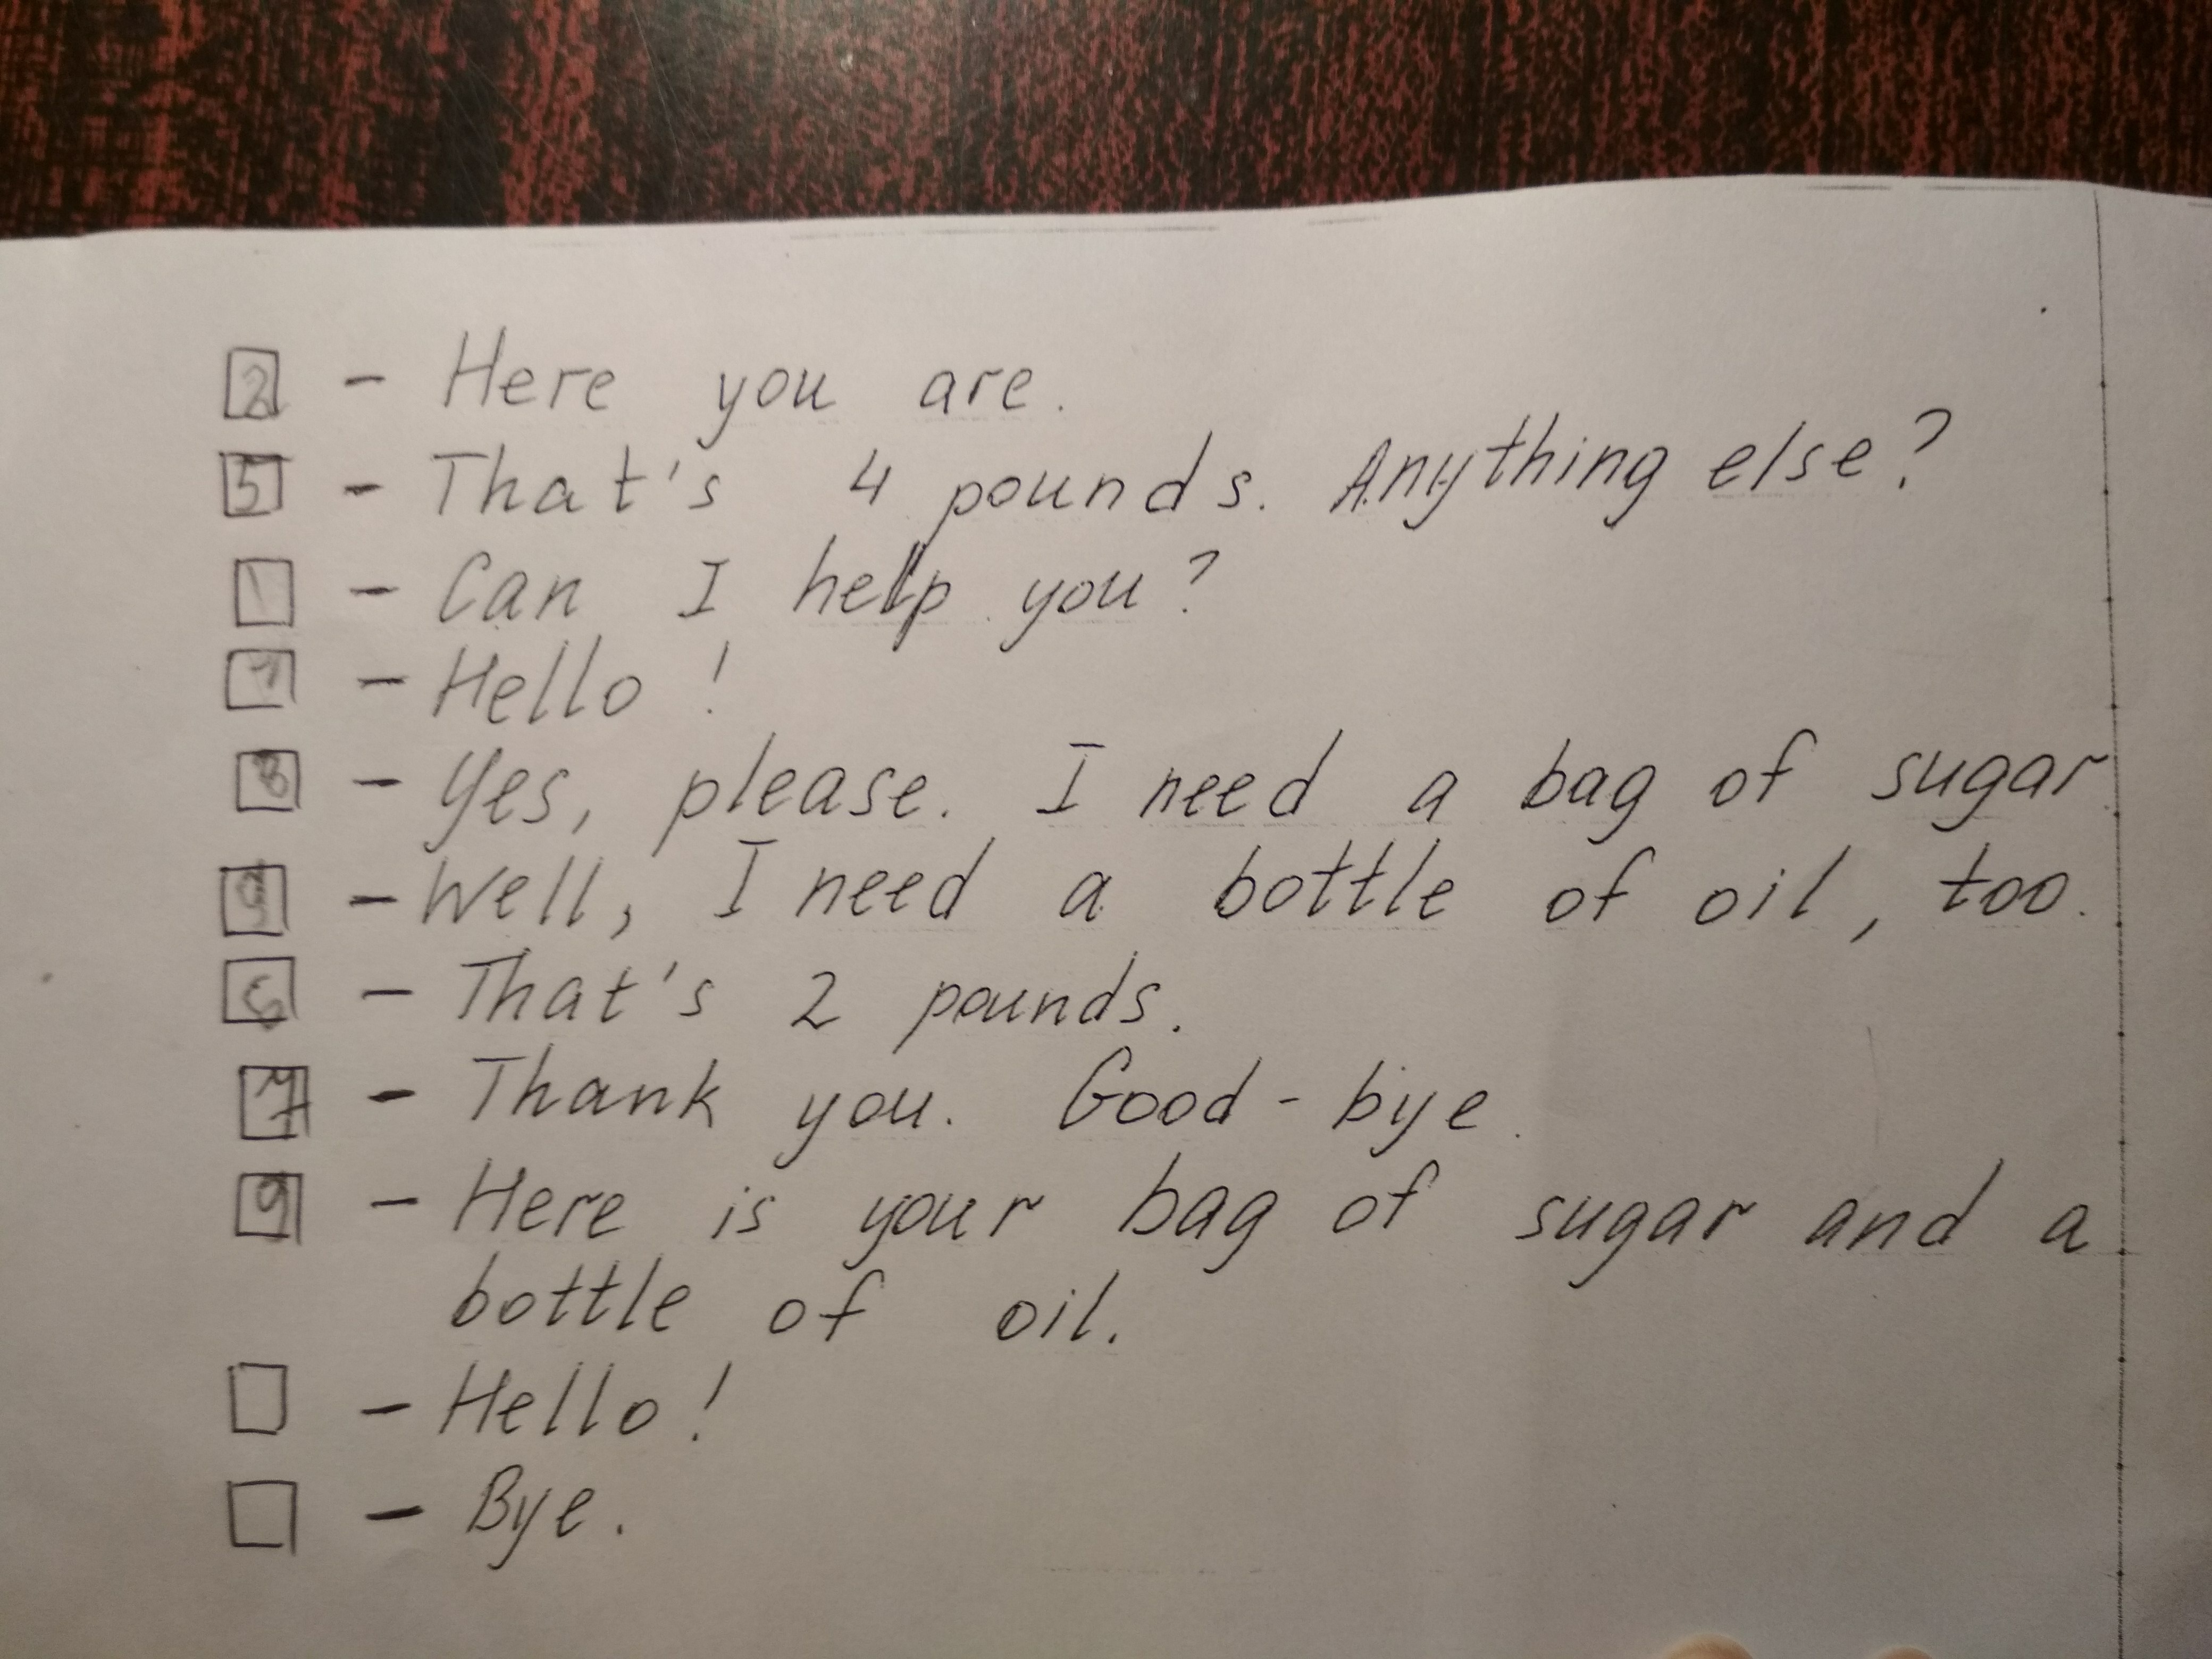 2 - Here you are.
5 - That's 4 pounds. Anything else?
1 - Can I help you?
- Hello!
3 - Yes, please. I need a bag of sugar.
- Well, I need a bottle of oil, too.
6 - That's 2 pounds.
7 - Thank you. Good-bye.
9 - Here is your bag of sugar and a
bottle of oil.
- Hello!
- Bye.